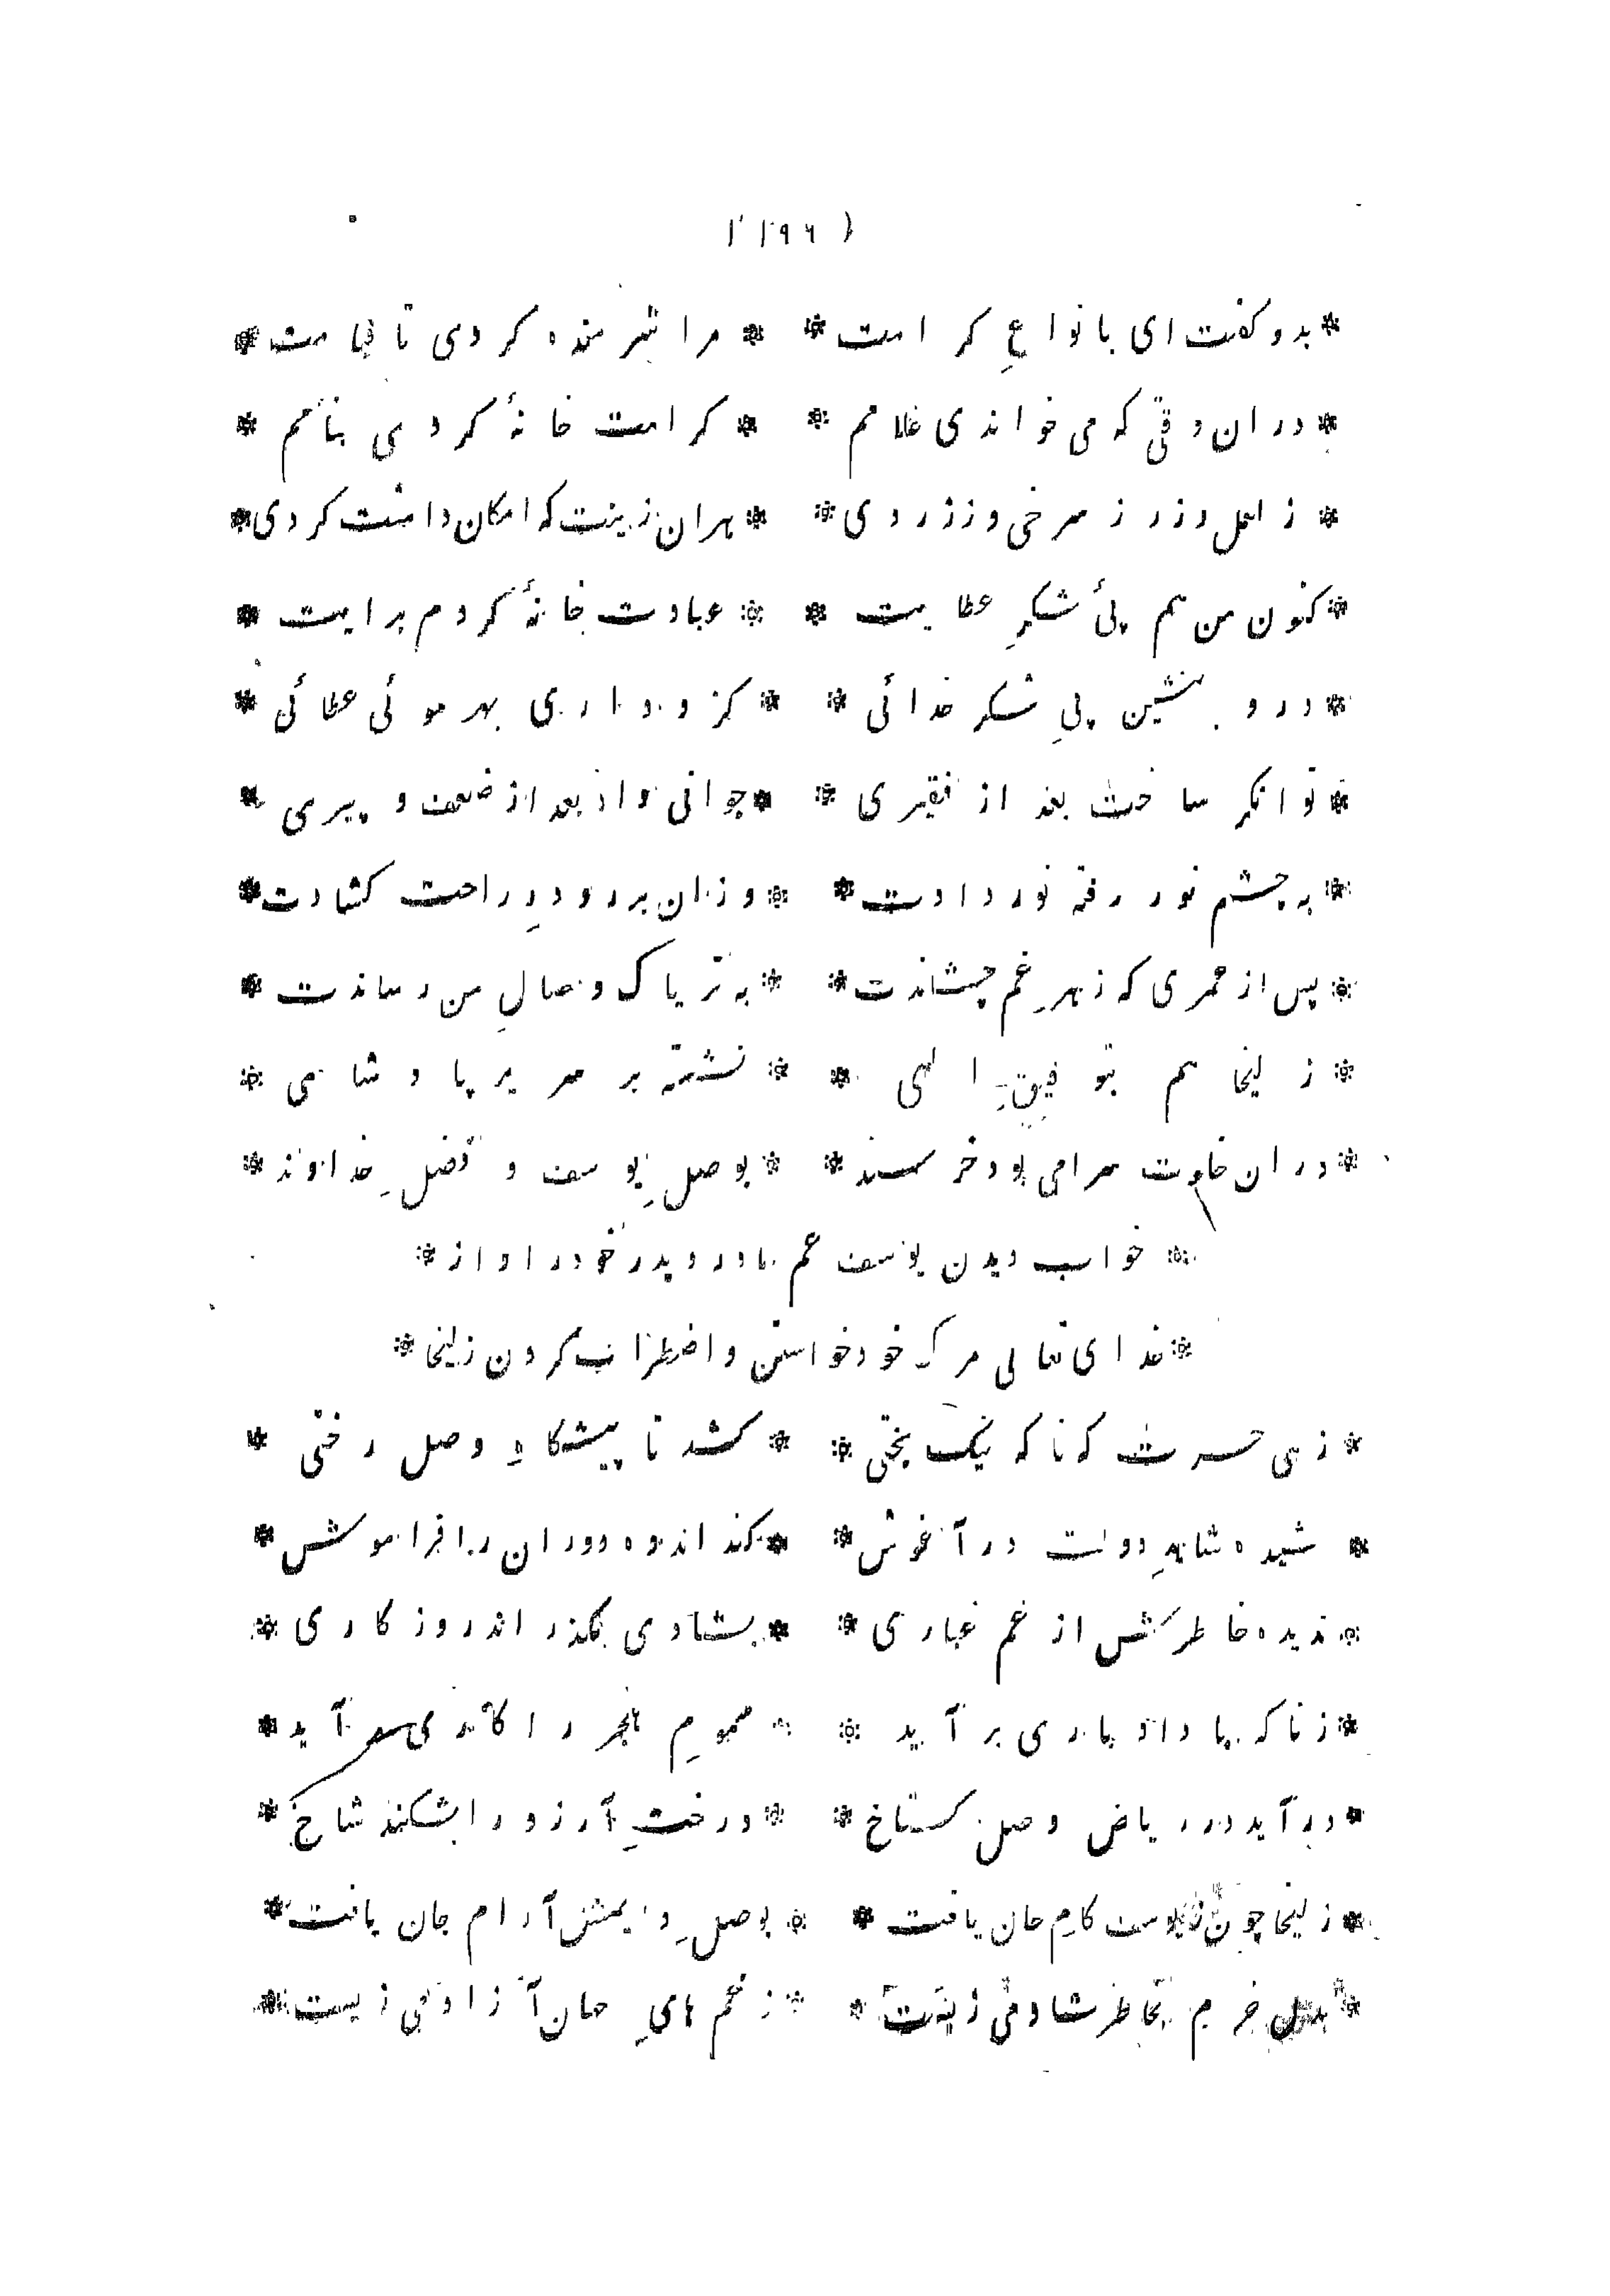 ( ۱۹۶ )
* بدو گفت ای بانواعِ کرامت * * مرا شرمنده کردی تا قیامت *
* دران وقتی که می خواندی غلامم * * کرامت خانهٔ کردی بنامم *
* ز لعل و زر ز سرخی و ز زردی * * بهران زینت که امکان داشت کردی *
* کنون من هم پئ شکرِ عطایت * * عبادت خانهٔ کردم برایت *
* درو بنشین پیِ شکر خدائی * * کزو داری بهر موئی عطائی *
* توانگر ساخت بعد از فقیری * * جوانی داد بعد از ضعف و پیری *
* به چشم نور رفته نور دادت * * وزان بر رو درِ راحت کشادت *
* پس از عمری که زهرِ غم چشاندت * * به تریاک وصالِ من رساندت *
* زلیخا هم بتوفیقِ الهی * * نشسته بر سریر پادشاهی *
* دران خلوت سرا می بود خرسند * * بوصلِ یوسف و فضلِ خداوند *
* خواب دیدن یوسف عم مادر و پدر خود را و از *
* خدای تعالی مرگ خود خواستن و اضطراب کردن زلیخا *
* زهی حسرت که ناگه نیک بختی * * کشد تا پیشگاهِ وصل رختی *
* شیده شاهدِ دولت در آغوش * * کند اندوه دوران را فراموش *
* ندیده خاطرش از غم غباری * * بشادی بگذراند روزگاری *
* ز ناگه باد ادباری بر آید * * سمومِ هجر را کاندمی سر آید *
* در آید در ریاض وصل گستاخ * * درختِ آرزو را بشکند شاخ *
* زلیخا چون ز یوسف کامِ جان یافت * * بوصلِ دایمش آرام جان یافت *
* بدل خرم بخاطر شاد می زیست * * ز غم هایِ جهان آزاد می زیست *